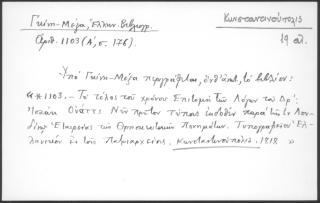 Γκίνη-Μέξα, Ἑλλην. Βιβλιογρ. Κωνσταντινούπολις
Ἀριθ. 1103 (Α΄, σ. 176). 19 αἰ.
Ὑπὸ Γκίνη-Μέξα περιγράφεται, τὸ βιβλίον:
1103. - Τὸ τέλος τοῦ χρόνου Ἐπιτομὴ τῶν Λόγων τοῦ Δρ:
Ἰσαὰκ Οὐάττς Νῦν πρῶτον τύποις ἐκδοθὲν παρὰ τῆς ἐν Λον-
δίνῳ Ἑταιρείας τῶν Θρησκευτικῶν Ποιημάτων. Τυπογραφεῖον Ἑλ-
ληνικὸν ἐν τοῖς Πατριαρχείοις. Κωνσταντινούπολις. 1818. »